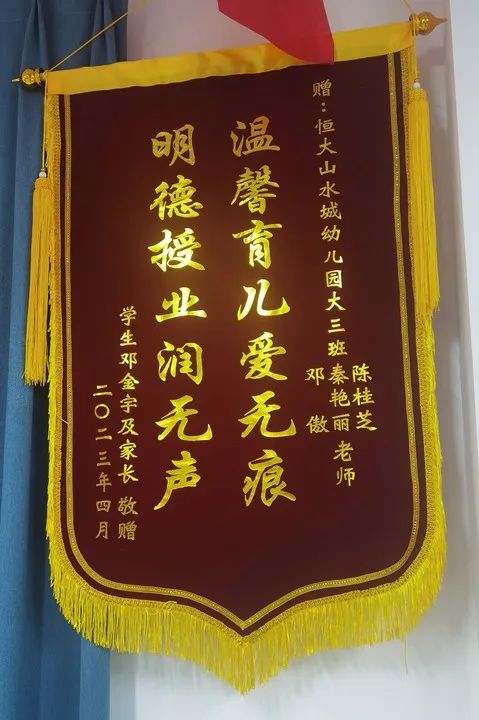 赠：恒大山水城幼儿园大三班秦艳丽老师
陈桂芝
邓傲
温馨育儿爱无痕
明德授业润无声
学生邓金宇及家长 敬赠
二〇二三年四月